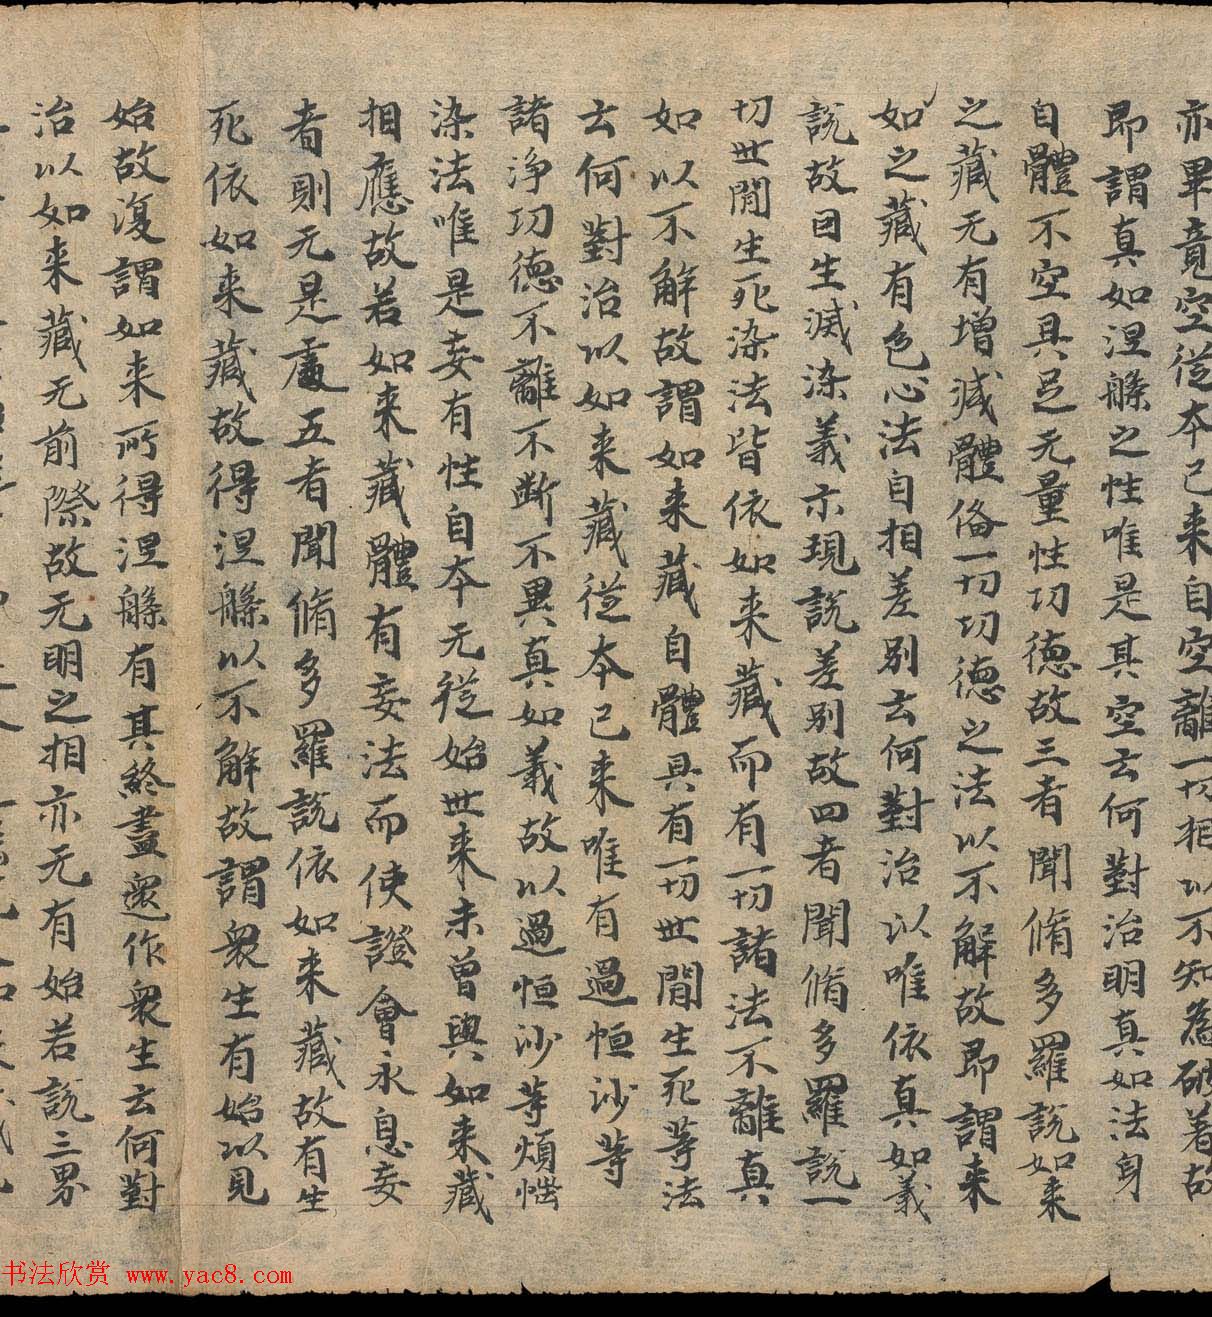 亦畢竟空從本已来自空離一切相以不知為破着故
即謂真如涅槃之性唯是其空云何對治明真如法身
自體不空具足无量性功德故三者聞脩多羅説如来
之藏无有增減體俻一切功德之法以不解故即謂来
如之藏有色心法自相差別云何對治以唯依真如義
説故因生滅染義示現説差別故四者聞脩多羅説一
切世間生死染法皆依如来藏而有一切諸法不離真
如以不解故謂如来藏自體具有一切世間生死等法
云何對治以如来藏從本已来唯有過恒沙等
諸淨功德不離不斷不異真如義故以過恒沙等煩惱
染法唯是妄有性自本无從始世来未曾與如来藏
相應故若如来藏體有妄法而使證會永息妄
者則无是處五者聞脩多羅説依如来藏故有生
死依如来藏故得涅槃以不解故謂衆生有始以見
始故復謂如来所得涅槃有其終盡還作衆生云何對
治以如来藏无前際故无明之相亦无有始若説三界
书法欣赏 www.yac8.com